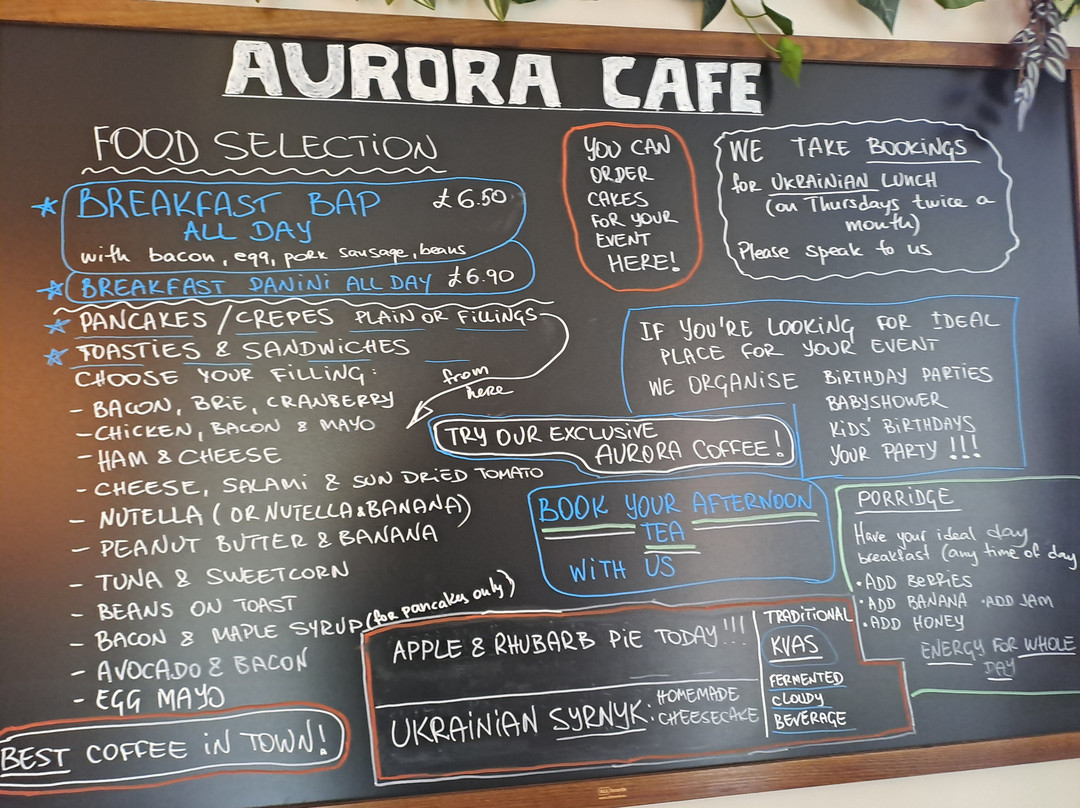 AURORA CAFE
FOOD SELECTION
BREAKFAST BAP £6.50
ALL DAY
with bacon, egg, pork sausage, beans
BREAKFAST PANINI ALL DAY £6.90
PANCAKES / CREPES PLAIN OR FILLINGS
TOASTIES & SANDWICHES
CHOOSE YOUR FILLING:
from
here
- BACON, BRIE, CRANBERRY
- CHICKEN, BACON & MAYO
- HAM & CHEESE
- CHEESE, SALAMI & SUN DRIED TOMATO
- NUTELLA (OR NUTELLA & BANANA)
- PEANUT BUTTER & BANANA
- TUNA & SWEETCORN
- BEANS ON TOAST
- BACON & MAPLE SYRUP (for pancakes only)
- AVOCADO & BACON
- EGG MAYO
BEST COFFEE IN TOWN!
YOU CAN
ORDER
CAKES
FOR YOUR
EVENT
HERE!
WE TAKE BOOKINGS
for UKRAINIAN LUNCH
(on Thursdays twice a
month)
Please speak to us
IF YOU'RE LOOKING FOR IDEAL
PLACE FOR YOUR EVENT
WE ORGANISE BIRTHDAY PARTIES
BABYSHOWER
KIDS' BIRTHDAYS
YOUR PARTY !!!
TRY OUR EXCLUSIVE
AURORA COFFEE!
BOOK YOUR AFTERNOON
TEA
WITH US
PORRIDGE
Have your ideal day
breakfast (any time of day
• ADD BERRIES
• ADD BANANA • ADD JAM
• ADD HONEY
ENERGY FOR WHOLE
DAY
APPLE & RHUBARB PIE TODAY!!!
UKRAINIAN SYRNYK: HOMEMADE
CHEESECAKE
TRADITIONAL
KVAS
FERMENTED
CLOUDY
BEVERAGE